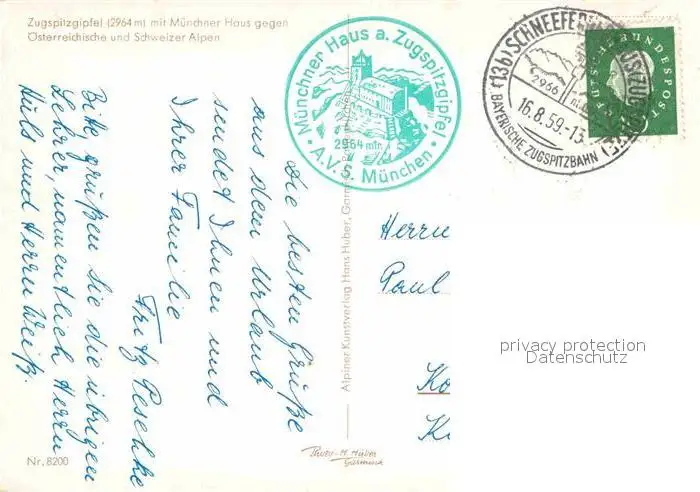 Zugspitzgipfel (2964 m) mit Münchner Haus gegen
Österreichische und Schweizer Alpen
Münchner Haus a. Zugspitzgipfel
2964 mtr.
A.V.S. München
(13b) SCHNEEFERNERHAUS
2966
16.8.59.-13
BAYERISCHE ZUGSPITZBAHN
DEUTSCHE BUNDESPOST
Die besten Grüße
aus dem Urlaub
sendet Ihnen und
Ihrer Familie
Fritz Peschke
Bitte grüßen Sie die übrigen
Lehrer, namentlich Herrn
Hüls und Herrn Weiß.
Alpiner Kunstverlag Hans Huber, Garmisch
Herrn
Paul
Ko
K
privacy protection
Datenschutz
Nr. 8200
Photo-H. Huber
Garmisch